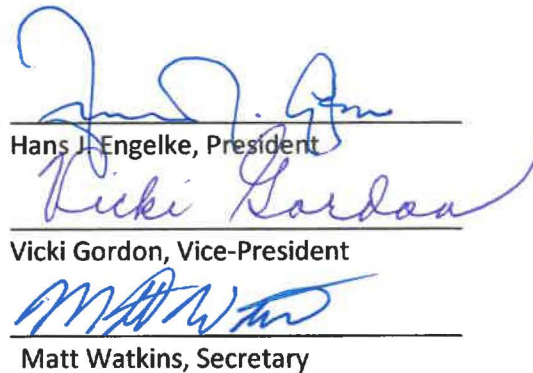 Hans J. Engelke, President
Vicki Gordon
Vicki Gordon, Vice-President
Matt Watkins, Secretary